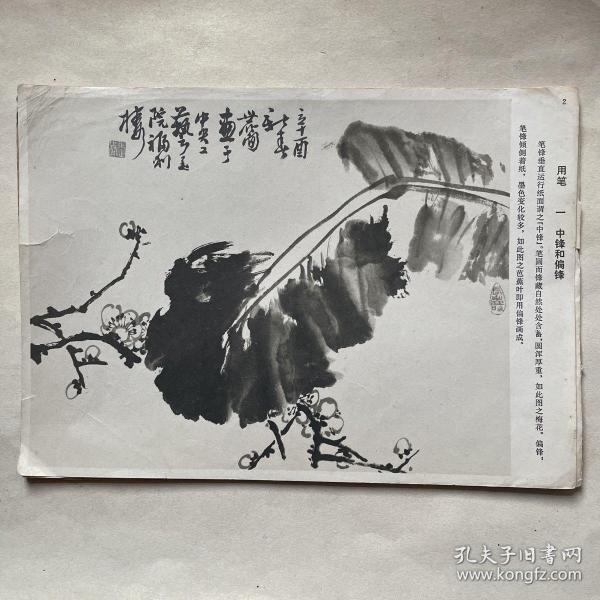 2
用笔 一 中锋和偏锋
笔锋垂直运行纸面谓之「中锋」。笔圆而锋藏自然处处含蓄，圆浑厚重，如此图之梅花。偏锋：
笔锋倾倒着纸，墨色变化较多，如此图之芭蕉叶即用偏锋画成。
辛酉
新春
画于
中央工
艺
院
楼
孔夫子旧书网
www.kongfz.com